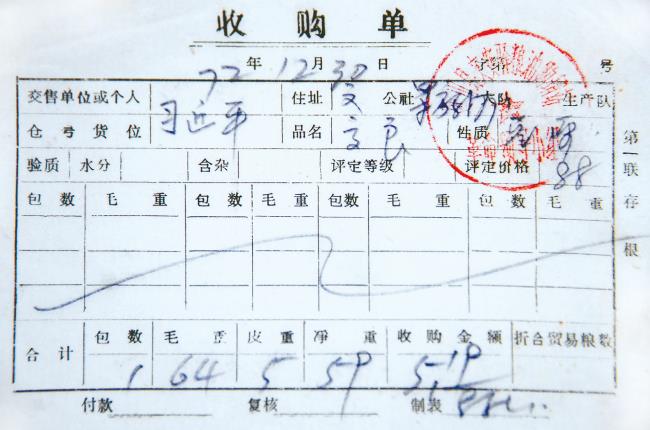 收购单
72年12月30日 字第 号
交售单位或个人 习近平 住址 文 公社 大队 生产队
仓号货位 品名 性质
验质 水分 含杂 评定等级 评定价格 88
包数 毛重 包数 毛重 包数 毛重 包数 毛重
合计 包数 毛重 皮重 净重 收购金额 折合贸易粮数
1 64 5 59 5.19
付款 复核 制表
第联存根